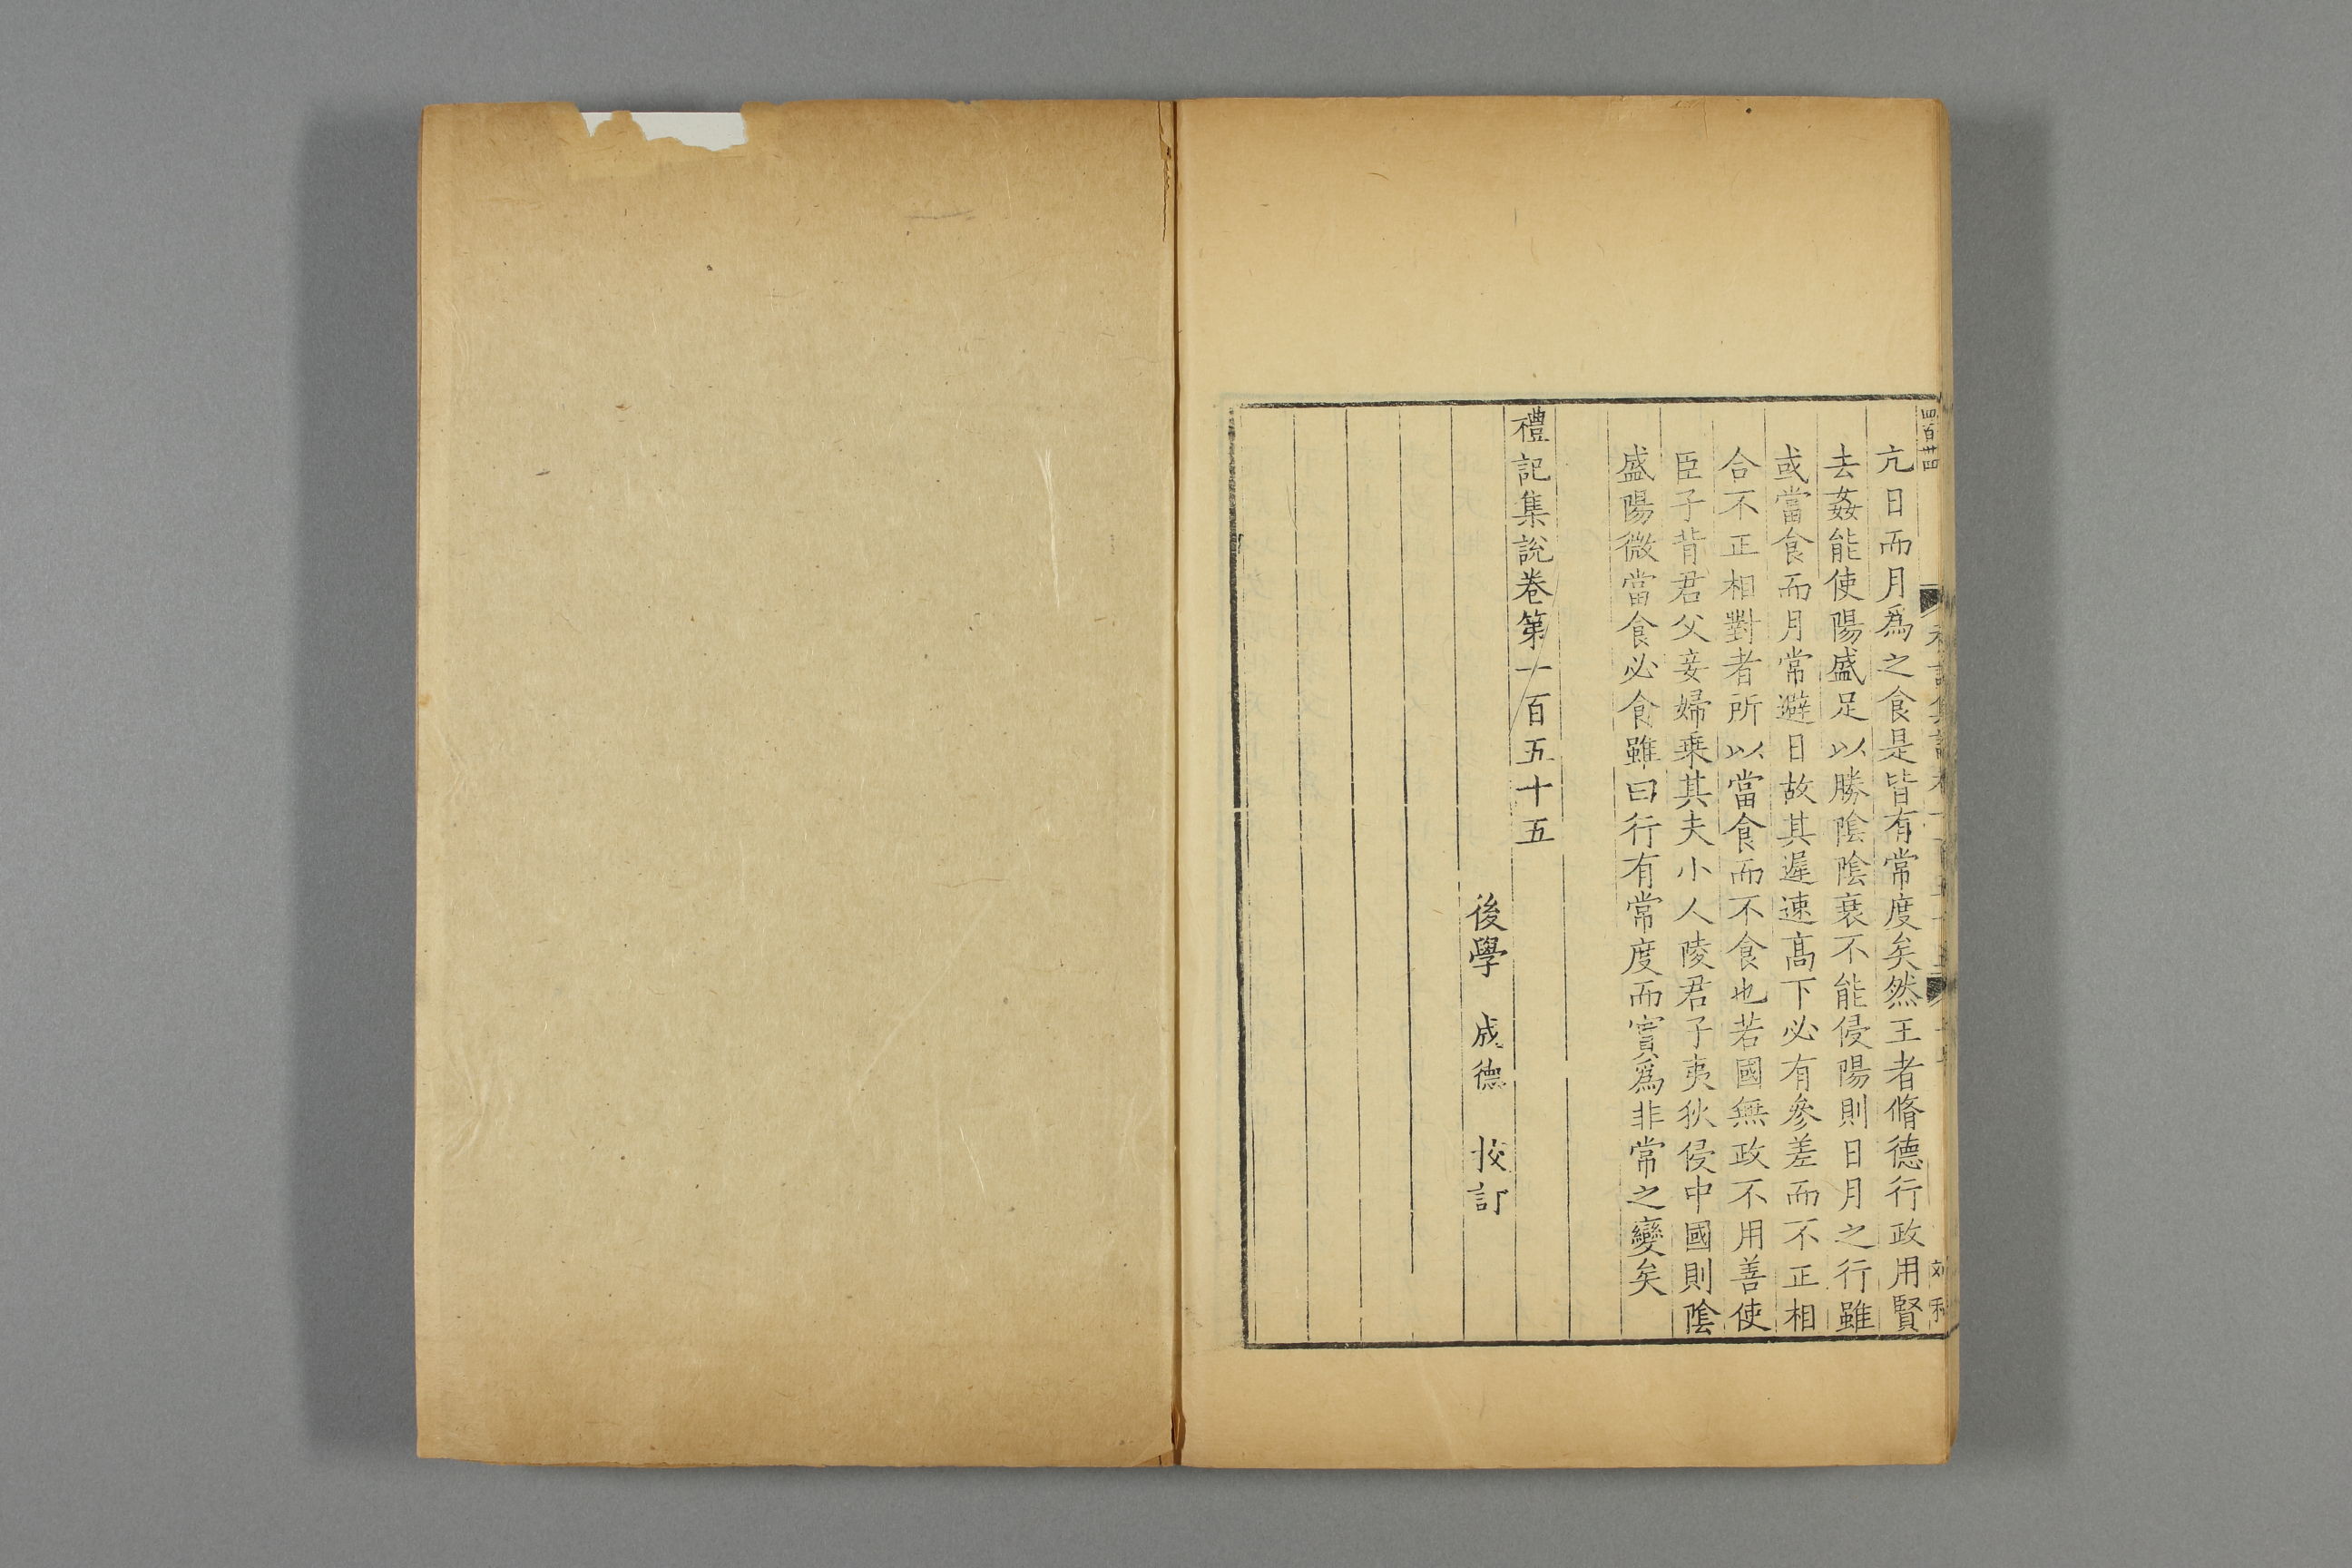 亢日而月爲之食是皆有常度矣然王者脩德行政用賢
去姦能使陽盛足以勝陰陰衰不能侵陽則日月之行雖
或當食而月常避日故其遲速高下必有參差而不正相
合不正相對者所以當食而不食也若國無政不用善使
臣子背君父妾婦乗其夫小人陵君子夷狄侵中國則陰
盛陽微當食必食雖曰行有常度而實爲非常之變矣
禮記集說卷第一百五十五
後學 成德 挍訂